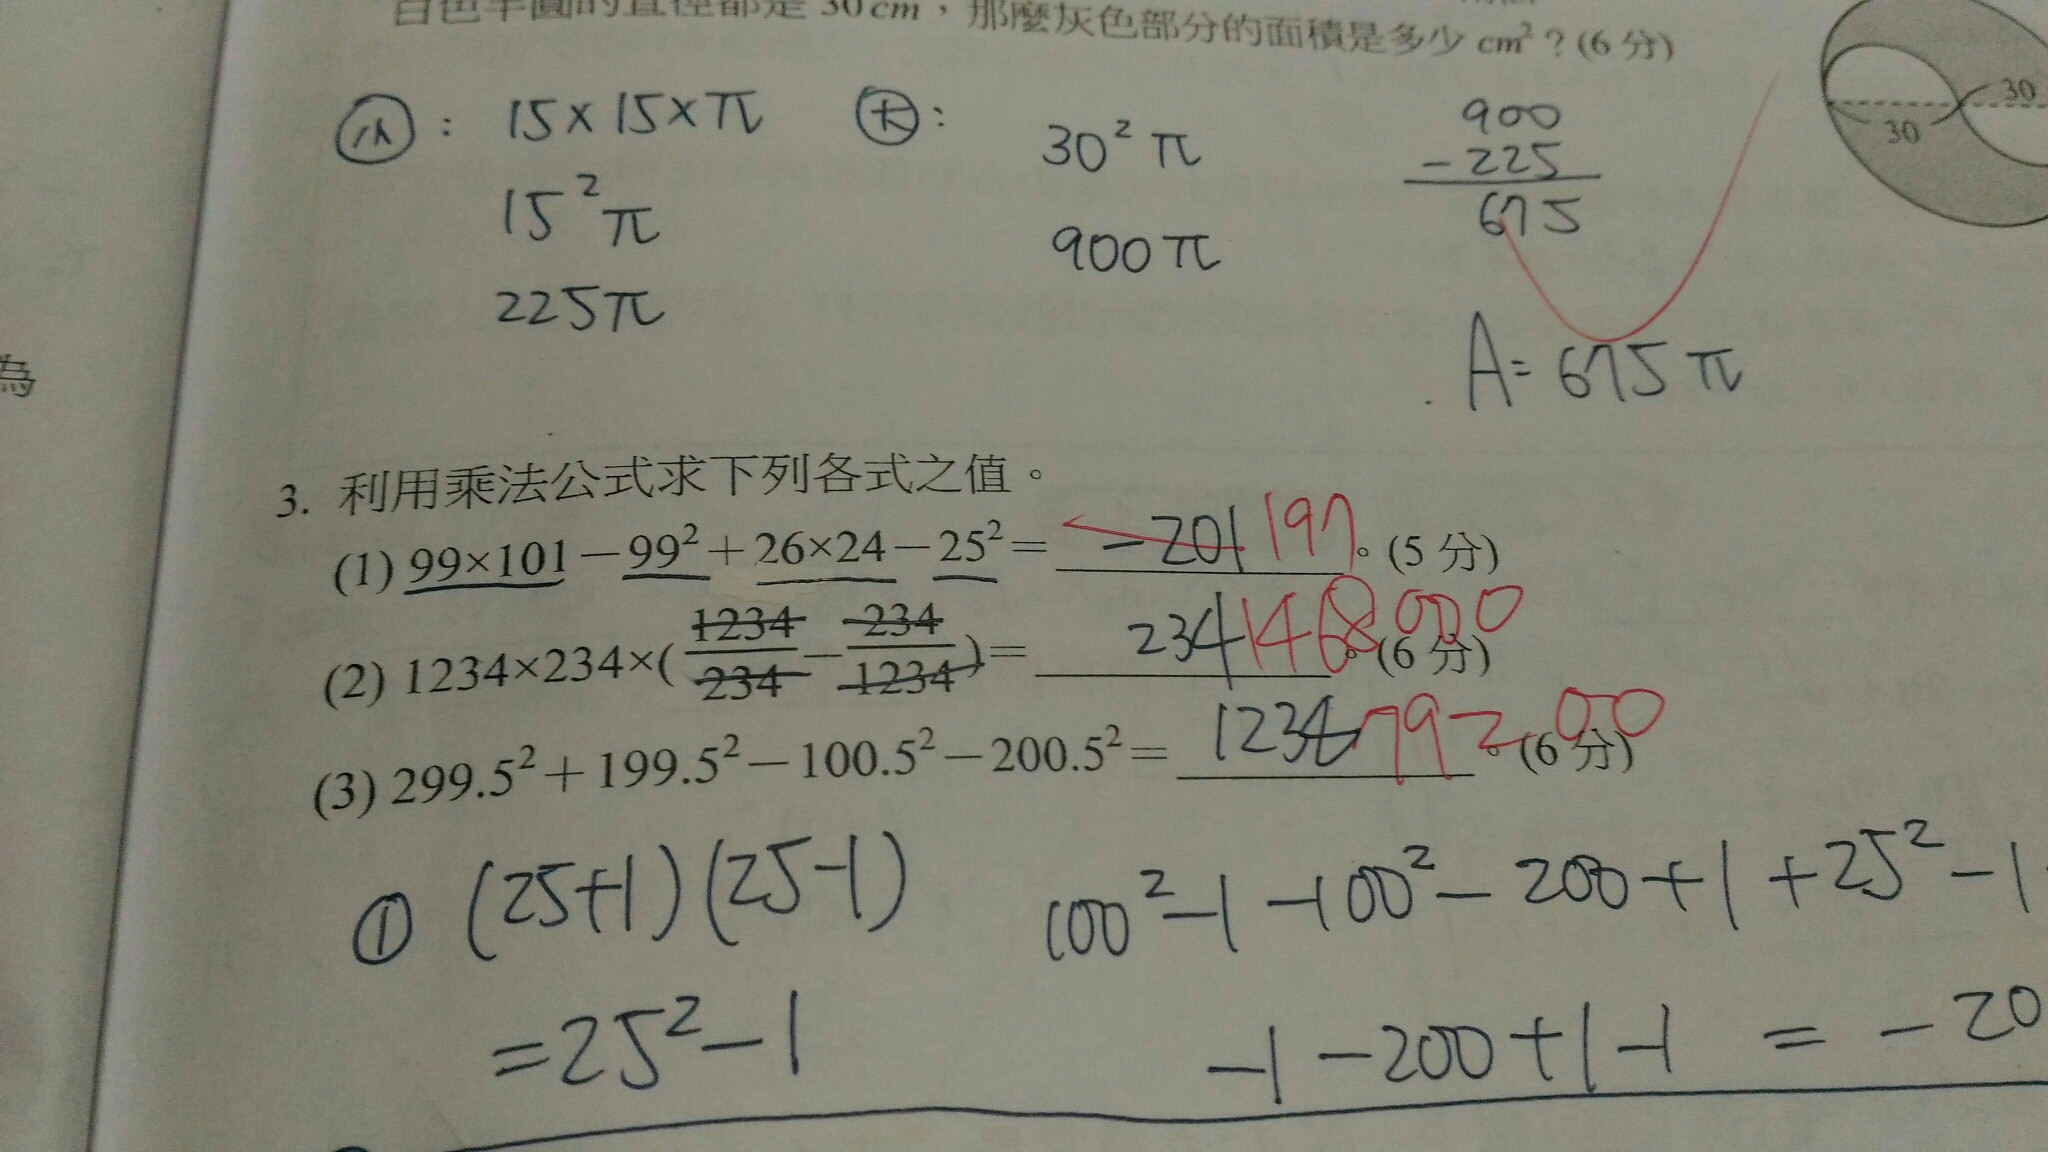 白色半圓的直徑都是 30 cm，那麼灰色部分的面積是多少 cm²？(6 分)
小 : 15×15×π
15²π
225π
大 :
30²π
900π
900
-225
675
A = 675π
30
30
為
3. 利用乘法公式求下列各式之值。
(1) 99×101－99²＋26×24－25²＝ -201 197 。(5 分)
(2) 1234×234×(1234/234－234/1234)＝ 234 1468000 。(6 分)
(3) 299.5²＋199.5²－100.5²－200.5²＝ 1234 79200 。(6 分)
① (25+1)(25-1)
=25²-1
100²-1-100²-200+1+25²-1
-1-200+1-1 = -20